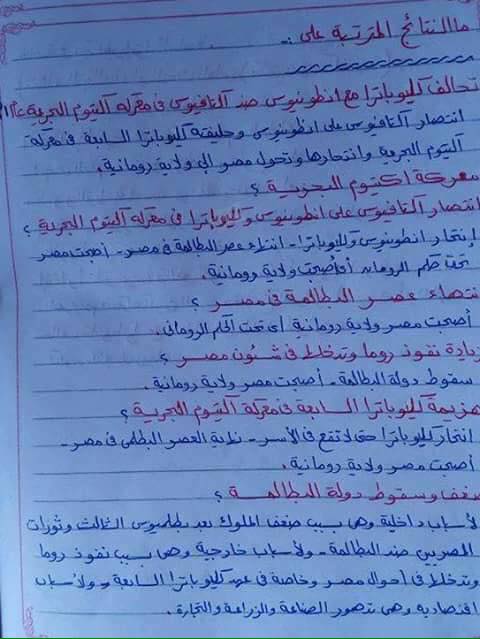 ما النتائج المترتبة على :-
تحالف كليوباترا مع انطونيوس ضد أكتافيوس فى معركة أكتيوم البحرية
انتصار أكتافيوس على انطونيوس وحليفته كليوباترا السابعة فى معركة
أكتيوم البحرية وانتحارها وتحول مصر إلى ولاية رومانية .
معركة اكتيوم البحرية ؟
انتصار أكتافيوس على انطونيوس وكليوباترا فى معركة أكتيوم البحرية ؟
إنتحار انطونيوس وكليوباترا - انتهاء عصر البطالمة فى مصر - أصبحت مصر
تحت حكم الرومان أى أصبحت ولاية رومانية .
نتهاء عصر البطالمة فى مصر ؟
أصبحت مصر ولاية رومانية أى تحت الحكم الرومانى .
زيادة نفوذ روما وتدخلها فى شئون مصر ؟
سقوط دولة البطالمة - أصبحت مصر ولاية رومانية .
هزيمة كليوباترا السابعة فى معركة أكتيوم البحرية ؟
انتحار كليوباترا حتى لا تقع فى الأسر - نهاية العصر البطلمى فى مصر -
أصبحت مصر ولاية رومانية .
ضعف وسقوط دولة البطالمة ؟
لأسباب داخلية وهى بسبب ضعف الملوك بعد بطلميوس الثالث وثورات
المصريين ضد البطالمة - ولأسباب خارجية وهى بسبب نفوذ روما
وتدخلها فى أحوال مصر وخاصة فى عهد كليوباترا السابعة - ولأسباب
اقتصادية وهى تدهور الصناعة والزراعة والتجارة .